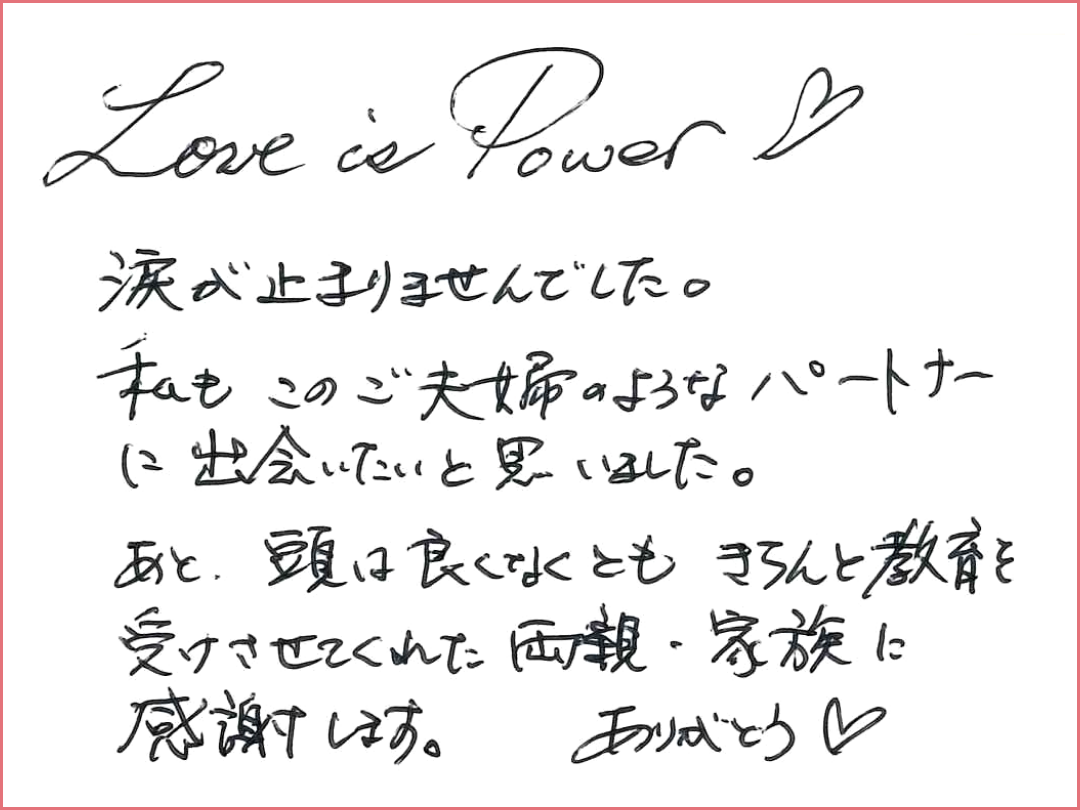 Love is Power ♡
涙が止まりませんでした。
私も このご夫婦のようなパートナー
に出会いたいと思いました。
あと、頭は良くなくとも きちんと教育を
受けさせてくれた両親・家族に
感謝します。 ありがとう♡